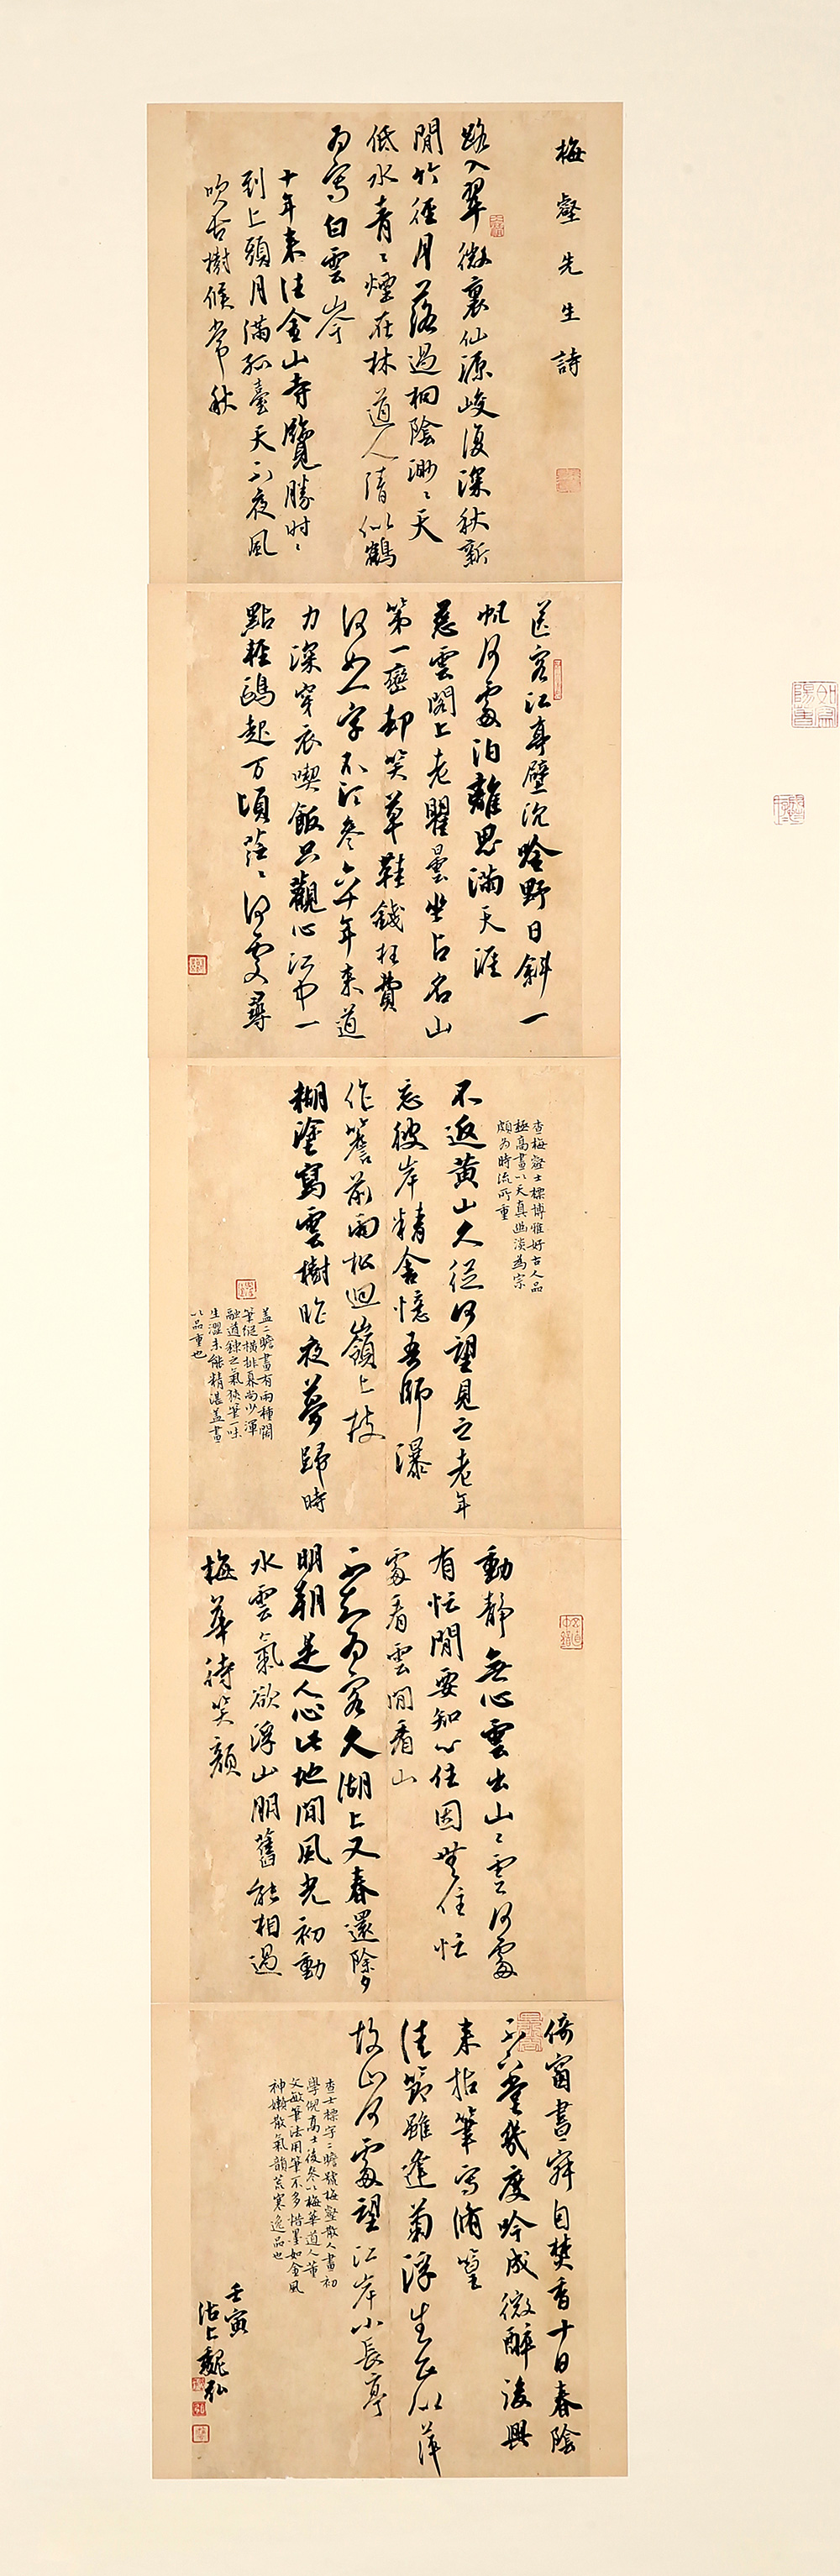 梅壑先生詩
路入翠微裏仙源峻復深秋新
閒竹徑月落過桐陰渺〻天
低水青〻煙在林道人情似鶴
為寫白雲岑
十年来往金山寺覽勝時〻
到上頭月滿孤臺天不夜風
吹古樹候常秋
送客江亭壁沉吟野日斜一
帆何處泊離思滿天涯
慈雲閣上老瞿曇坐占名山
第一巒却笑草鞋錢枉費
何如一字不須参六年来道
力深穿衣喫飯只觀心江中一
點輕鷗起万頃茫〻何處尋
查梅壑士標博雅好古人品
極高畫以天真幽淡為宗
頗為時流所重
不返黄山久從何望見之老年
忘彼岸精舍憶吾師瀑
作簷前雨松迴嶺上枝
糊塗寫雲樹昨夜夢歸時
蓋二瞻畫有兩種闊
筆縱横排奡尚少渾
融遒鍊之氣狹筆一味
生澀未能精湛蓋畫
以品重也
動静無心雲出山〻雲何處
有忙閒要知心住因無住忙
處看雲閒看山
不知為客久湖上又春還除夕
明朝是人心此地閒風光初動
水雲氣欲浮山朋舊能相過
梅華待笑顏
倚窗書寂自焚香十日春陰
不下堂幾度吟成微醉後興
来拈筆寫脩篁
佳節雖逢菊浮生正似萍
故山何處望江岸小長亭
查士標字二瞻號梅壑散人畫初
學倪高士後参以梅華道人董
文敏筆法用筆不多惜墨如金風
神嬾散氣韻荒寒逸品也
壬寅
沽上魏弘